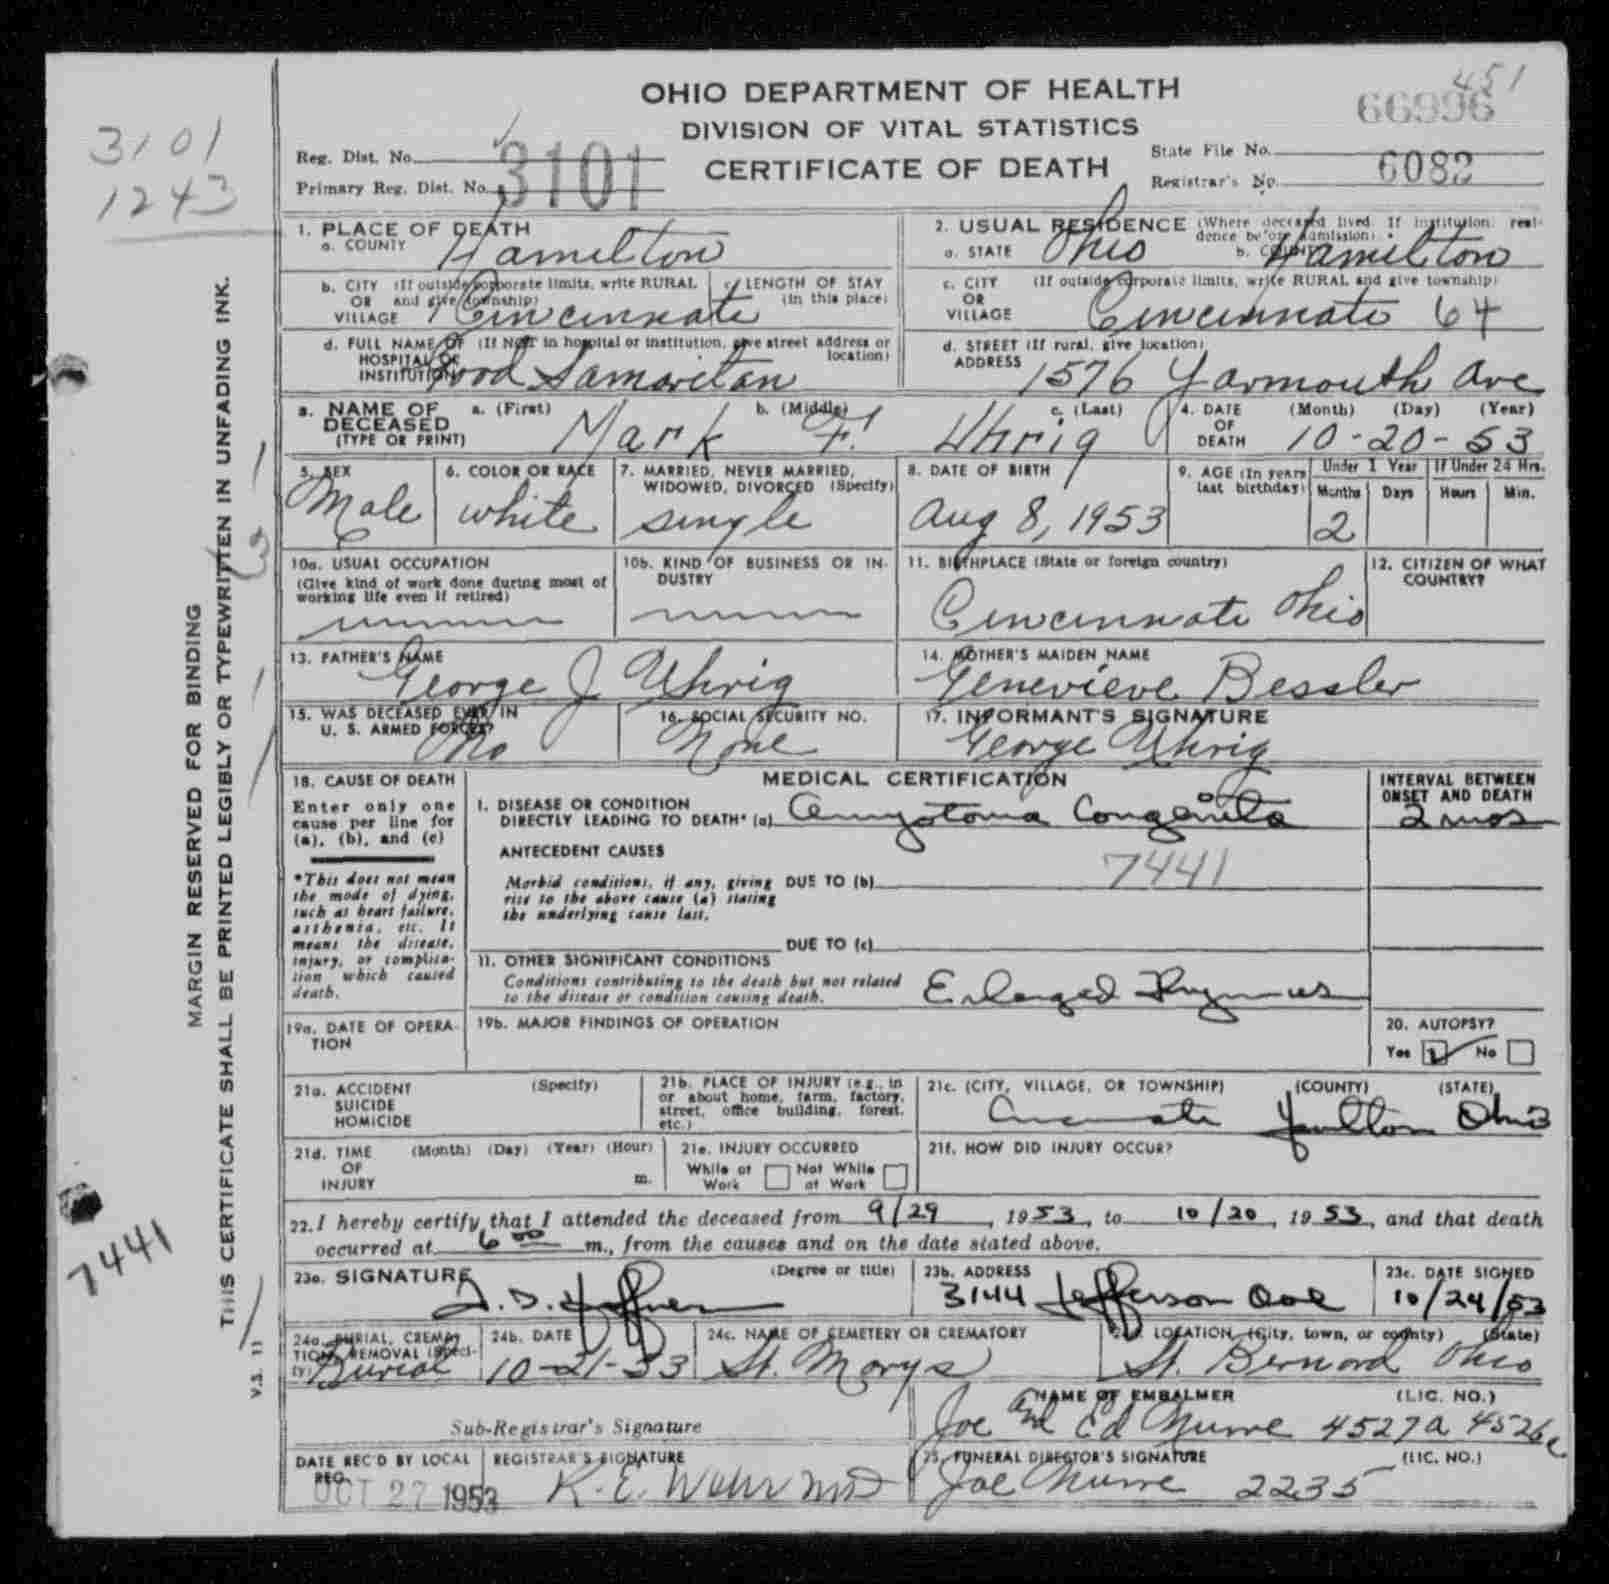 OHIO DEPARTMENT OF HEALTH
DIVISION OF VITAL STATISTICS
CERTIFICATE OF DEATH
3101
1243
451
66996
Reg. Dist. No.
Primary Reg. Dist. No. 3101
State File No.
Registrar's No. 6082
MARGIN RESERVED FOR BINDING
THIS CERTIFICATE SHALL BE PRINTED LEGIBLY OR TYPEWRITTEN IN UNFADING INK.
V.S. 11
7441
1. PLACE OF DEATH
a. COUNTY Hamilton
2. USUAL RESIDENCE (Where deceased lived. If institution: residence before admission).
a. STATE Ohio b. COUNTY Hamilton
b. CITY (If outside corporate limits, write RURAL
OR and give township)
VILLAGE Cincinnati
c. LENGTH OF STAY
(in this place)
c. CITY (If outside corporate limits, write RURAL and give township)
OR
VILLAGE Cincinnati 64
d. FULL NAME OF (If NOT in hospital or institution, give street address or location)
HOSPITAL OR
INSTITUTION Good Samaritan
d. STREET (If rural, give location)
ADDRESS 1576 Yarmouth Ave
3. NAME OF DECEASED
(TYPE OR PRINT)
a. (First) Mark b. (Middle) F. c. (Last) Uhrig
4. DATE OF DEATH (Month) (Day) (Year)
10-20-53
5. SEX
Male
6. COLOR OR RACE
white
7. MARRIED, NEVER MARRIED,
WIDOWED, DIVORCED (Specify)
single
8. DATE OF BIRTH
Aug 8, 1953
9. AGE (In years last birthday)
Under 1 Year If Under 24 Hrs.
Months Days Hours Min.
2
10a. USUAL OCCUPATION
(Give kind of work done during most of
working life even if retired)
10b. KIND OF BUSINESS OR INDUSTRY
11. BIRTHPLACE (State or foreign country)
Cincinnati Ohio
12. CITIZEN OF WHAT
COUNTRY?
13. FATHER'S NAME
George J Uhrig
14. MOTHER'S MAIDEN NAME
Genevieve Bessler
15. WAS DECEASED EVER IN
U. S. ARMED FORCES?
No
16. SOCIAL SECURITY NO.
None
17. INFORMANT'S SIGNATURE
George Uhrig
18. CAUSE OF DEATH
Enter only one
cause per line for
(a), (b), and (c)
*This does not mean
the mode of dying,
such as heart failure,
asthenia, etc. It
means the disease,
injury, or complica-
tion which caused
death.
MEDICAL CERTIFICATION
INTERVAL BETWEEN
ONSET AND DEATH
I. DISEASE OR CONDITION
DIRECTLY LEADING TO DEATH* (a) Amyotonia Congenita
2 mos
ANTECEDENT CAUSES
7441
Morbid conditions, if any, giving DUE TO (b)
rise to the above cause (a) stating
the underlying cause last.
DUE TO (c)
11. OTHER SIGNIFICANT CONDITIONS
Conditions contributing to the death but not related
to the disease or condition causing death.
Enlarged Thymus
19a. DATE OF OPERA-
TION
19b. MAJOR FINDINGS OF OPERATION
20. AUTOPSY?
Yes No
21a. ACCIDENT (Specify)
SUICIDE
HOMICIDE
21b. PLACE OF INJURY (e.g., in
or about home, farm, factory,
street, office building, forest,
etc.)
21c. (CITY, VILLAGE, OR TOWNSHIP) (COUNTY) (STATE)
Cincinnati Hamilton Ohio
21d. TIME (Month) (Day) (Year) (Hour)
OF
INJURY m.
21e. INJURY OCCURRED
While at Work Not While at Work
21f. HOW DID INJURY OCCUR?
22. I hereby certify that I attended the deceased from 9/29, 1953, to 10/20, 1953, and that death
occurred at 6 00 m., from the causes and on the date stated above.
23a. SIGNATURE (Degree or title)
23b. ADDRESS
3144 Jefferson Ave
23c. DATE SIGNED
10/24/53
24a. BURIAL, CREMA-
TION, REMOVAL (Speci-
fy) Burial
24b. DATE
10-21-53
24c. NAME OF CEMETERY OR CREMATORY
St. Marys
24d. LOCATION (City, town, or county) (State)
St. Bernard Ohio
Sub-Registrar's Signature
NAME OF EMBALMER (LIC. NO.)
Joe and Ed Nurre 4527a 4526a
DATE REC'D BY LOCAL
REG.
OCT 27 1953
REGISTRAR'S SIGNATURE
K. E. Wehr MD
25. FUNERAL DIRECTOR'S SIGNATURE (LIC. NO.)
Joe Nurre 2235